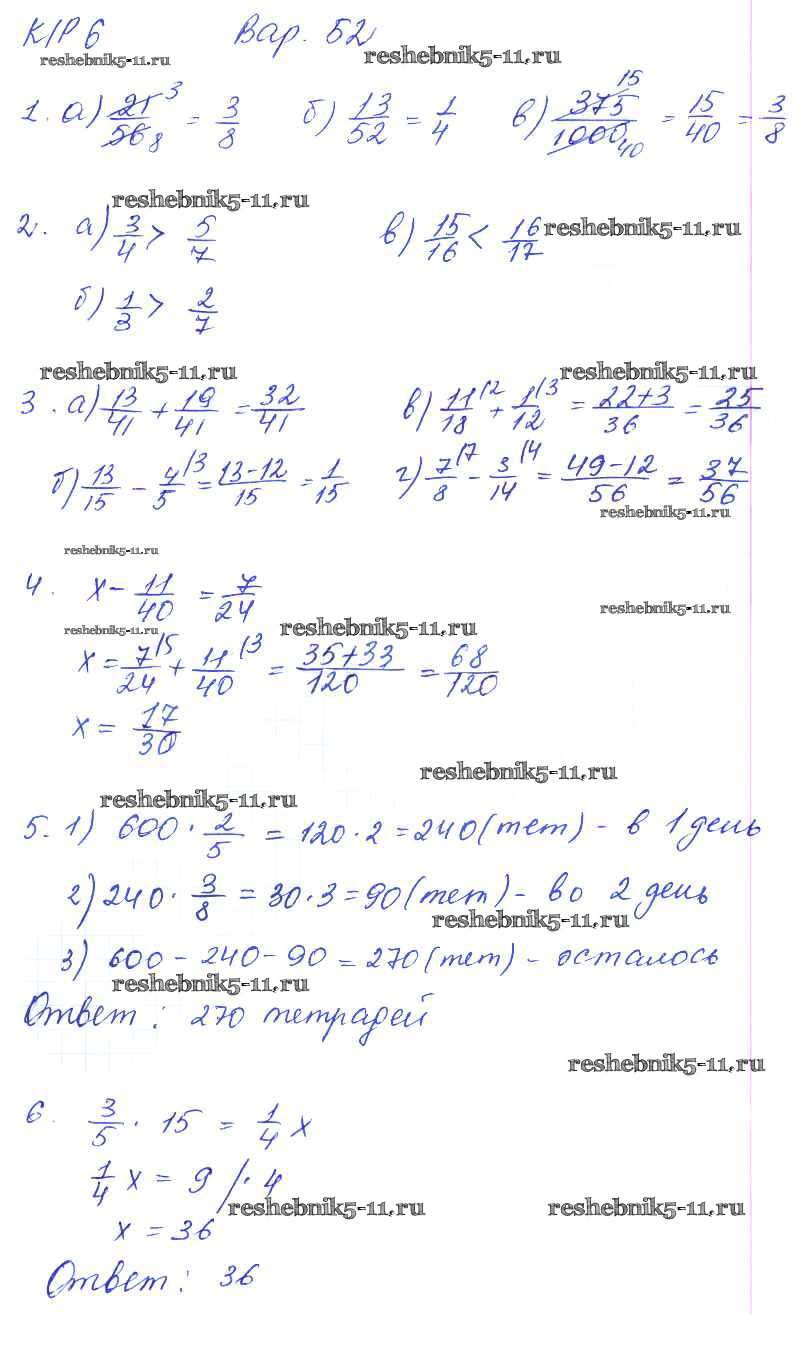 К/Р 6 Вар. 52
reshebnik5-11.ru reshebnik5-11.ru
1. а) 21/56 (3, 8) = 3/8 б) 13/52 = 1/4 в) 375/1000 (15, 40) = 15/40 = 3/8
reshebnik5-11.ru
2. а) 3/4 > 5/7 в) 15/16 < 16/17 reshebnik5-11.ru
б) 1/3 > 2/7
reshebnik5-11.ru reshebnik5-11.ru
3. а) 13/41 + 19/41 = 32/41 в) 11/18 (/2) + 1/12 (/3) = 22+3/36 = 25/36
б) 13/15 - 4/5 (/3) = 13-12/15 = 1/15 г) 7/8 (/7) - 3/14 (/4) = 49-12/56 = 37/56
reshebnik5-11.ru
reshebnik5-11.ru
4. x - 11/40 = 7/24
reshebnik5-11.ru
reshebnik5-11.ru reshebnik5-11.ru
x = 7/24 (/5) + 11/40 (/3) = 35+33/120 = 68/120
x = 17/30
reshebnik5-11.ru
reshebnik5-11.ru
5. 1) 600 · 2/5 = 120 · 2 = 240 (тет) - в 1 день
2) 240 · 3/8 = 30 · 3 = 90 (тет) - во 2 день
reshebnik5-11.ru
3) 600 - 240 - 90 = 270 (тет) - осталось
reshebnik5-11.ru
Ответ: 270 тетрадей
reshebnik5-11.ru
6. 3/5 · 15 = 1/4 x
1/4 x = 9 /· 4
reshebnik5-11.ru reshebnik5-11.ru
x = 36
Ответ: 36